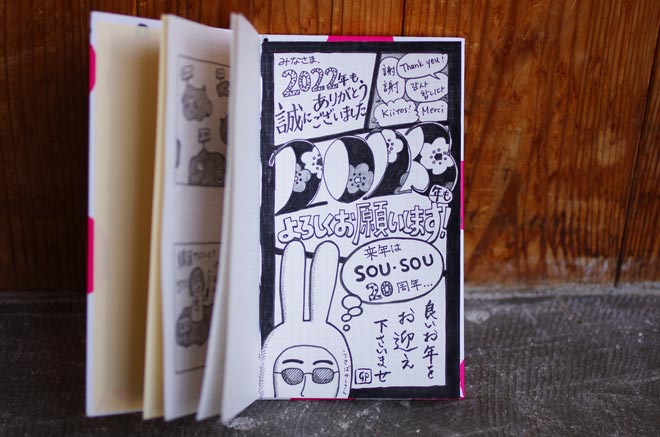 みなさま、
2022年も、
ありがとう
誠にございました
Thank you!
謝謝
감사
합니다
Kiitos!
Merci
2023
年も
よろしくお願いします!
来年は
SOU・SOU
20周年…
良いお年を
お迎え
下さいませ
GP